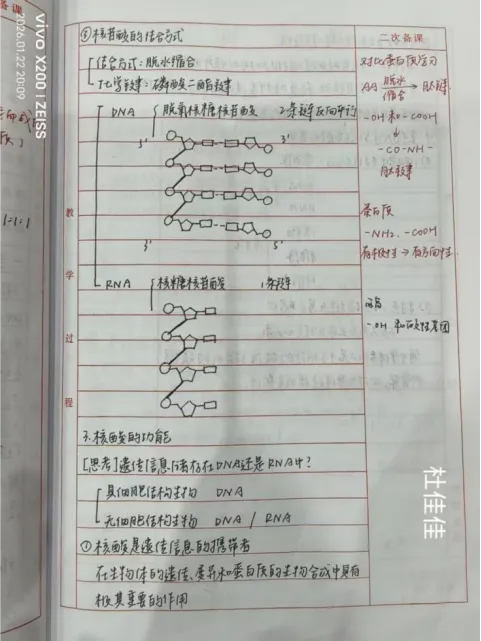 备课
vivo X200 | ZEISS
2026.01.22 20:09
1:1=1
③核苷酸的结合方式
结合方式:脱水缩合
化学键:磷酸二酯键
DNA 脱氧核糖核苷酸 2条链反向平行
5' 3'
3' 5'
RNA 核糖核苷酸 1条链
教
学
过
程
3.核酸的功能
[思考]遗传信息储存在DNA还是RNA中?
具细胞结构生物 DNA
无细胞结构生物 DNA / RNA
①核酸是遗传信息的携带者
在生物体的遗传、变异和蛋白质的生物合成中具有
极其重要的作用
二次备课
对比蛋白质学习
AA 脱水缩合 → 肽链
-OH 和 -COOH
↓
-CO-NH-
肽键
蛋白质
-NH2、-COOH
有极性→有方向性
-OH 和
杜佳佳